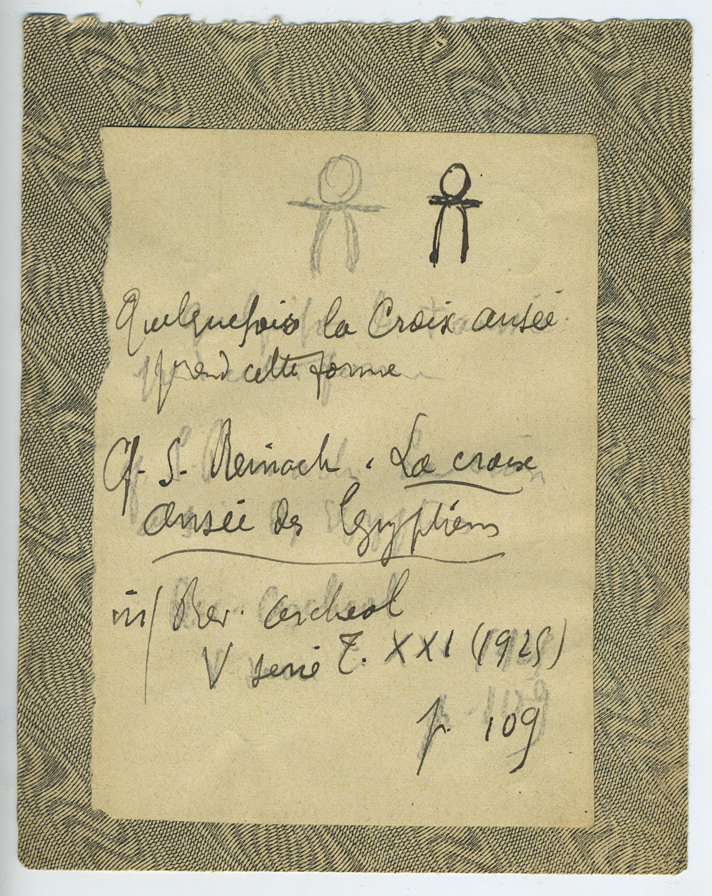 Quelquefois la Croix ansée
prend cette forme
Cf. S. Reinach. La croix
ansée des Egyptiens
in/ Rev. archeol
V serie T. XXI (1925)
p. 109